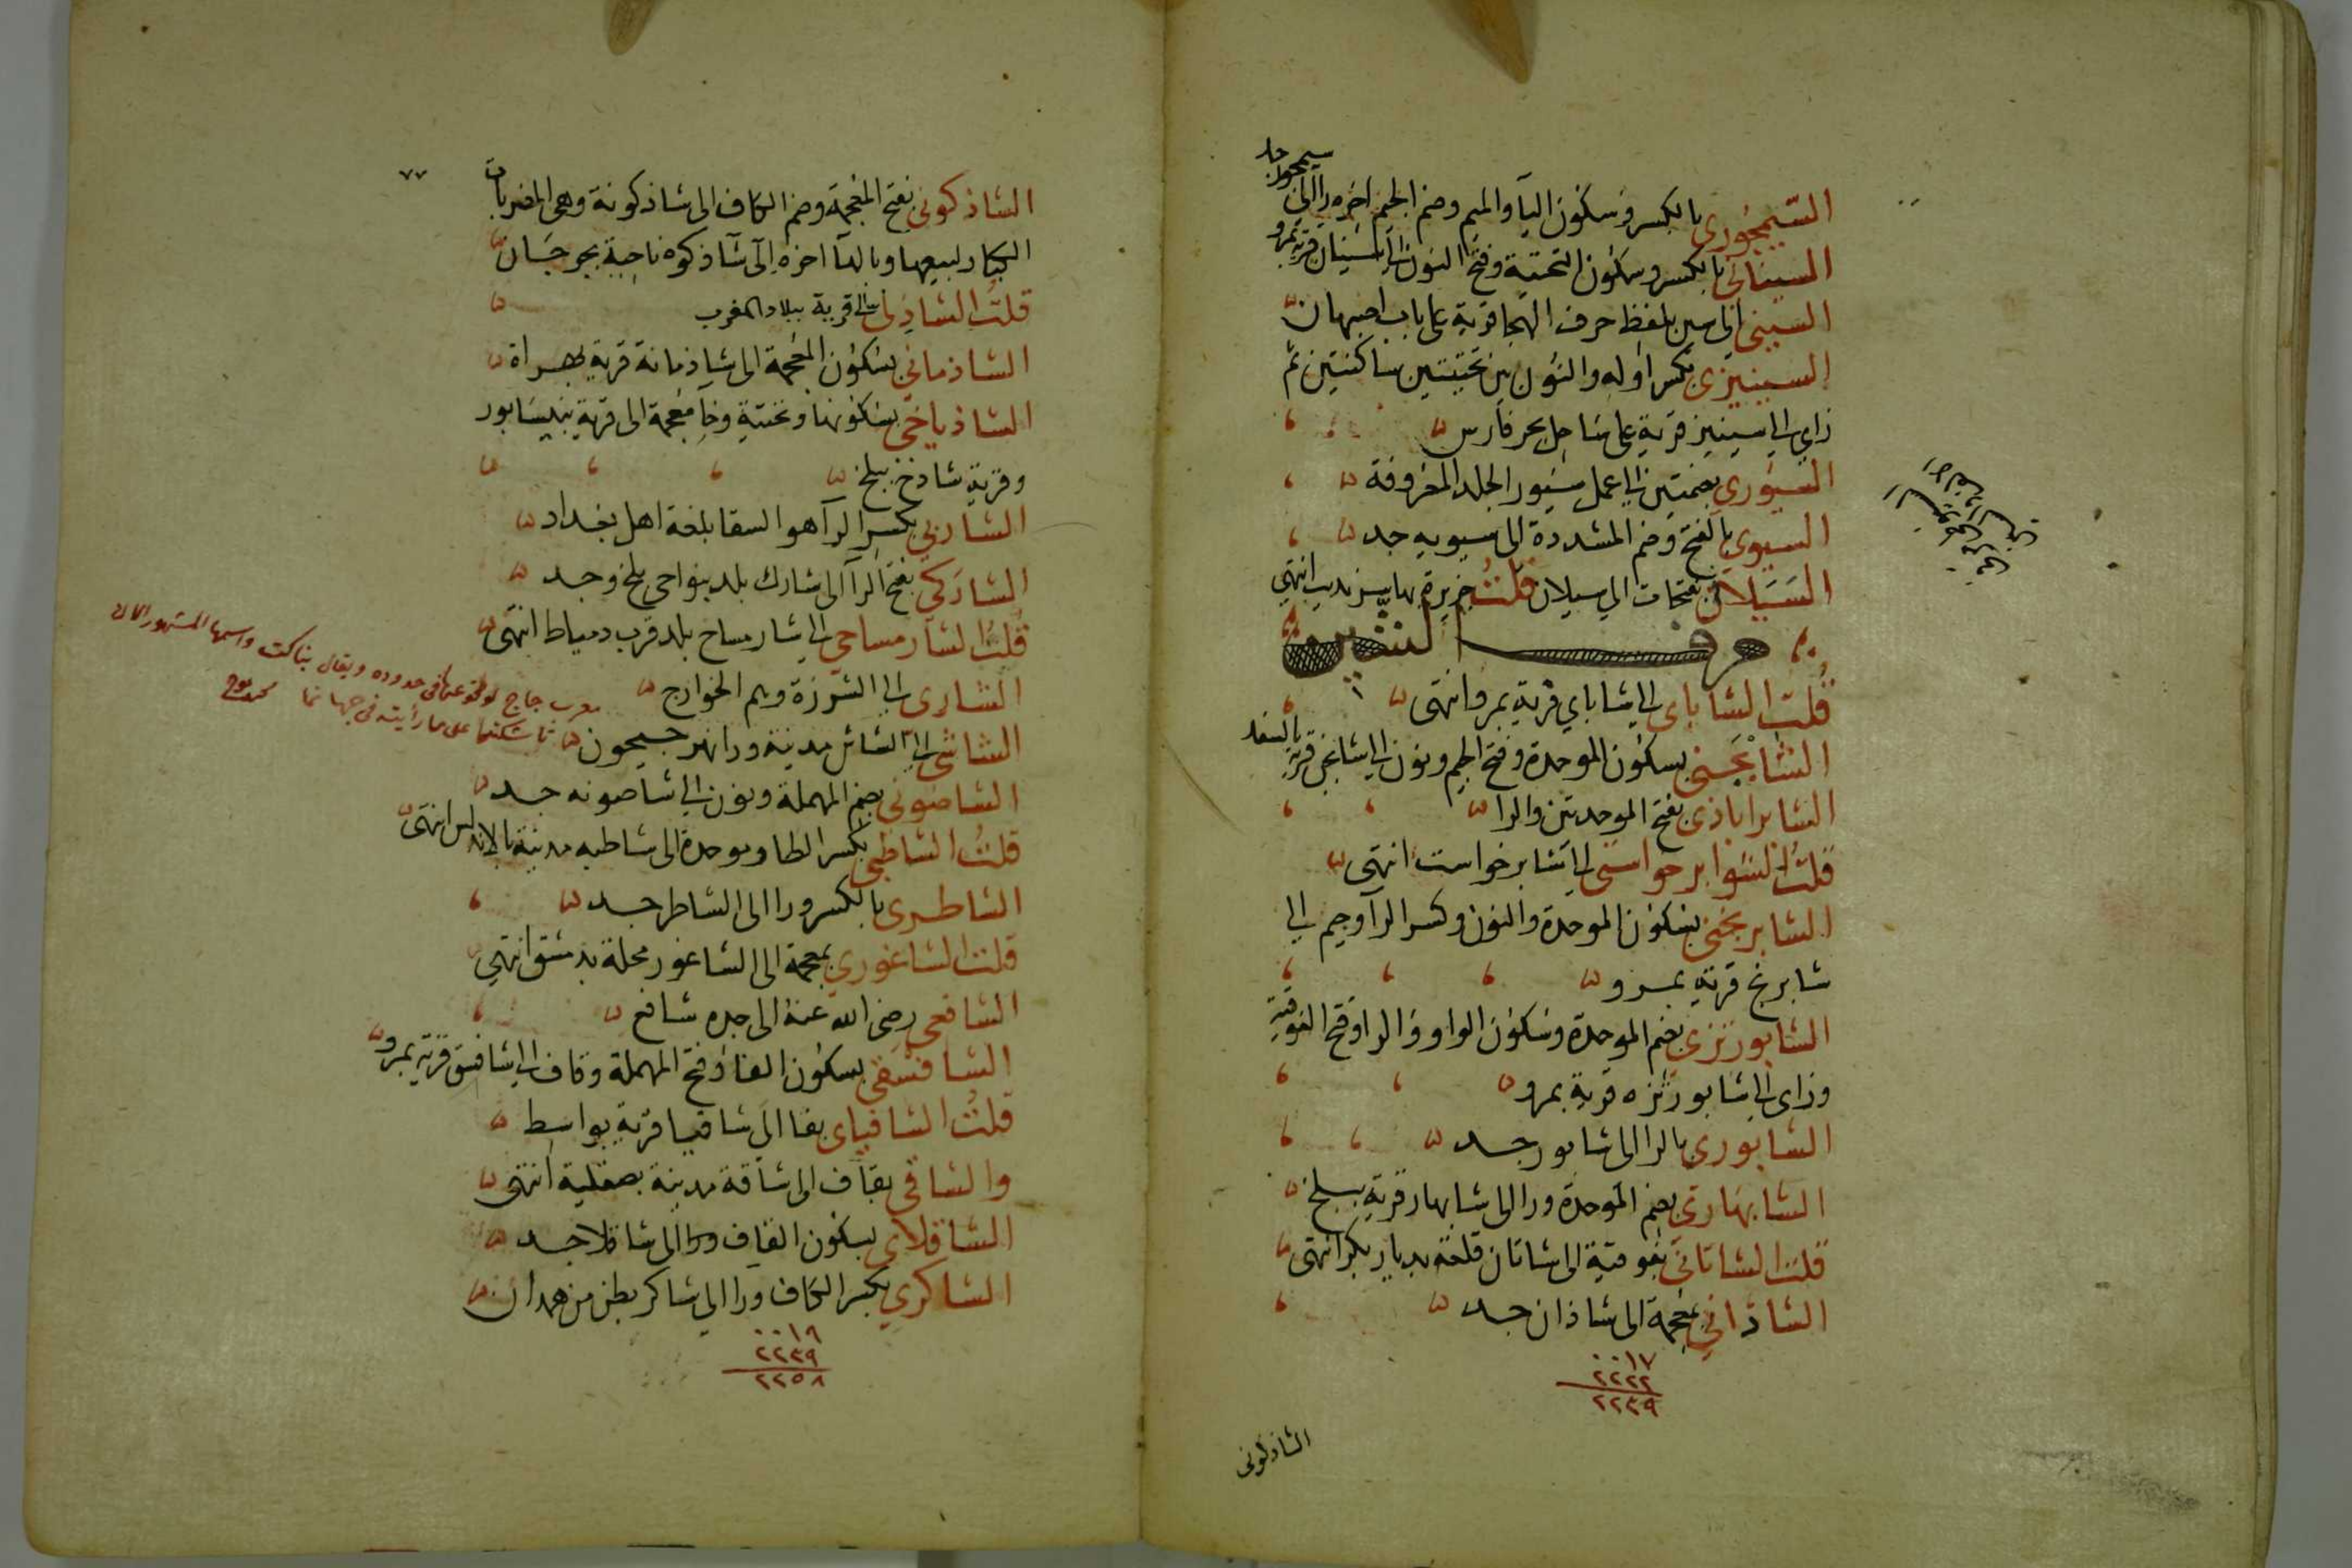 السيمجوري بالكسر وسكون اليآ والميم وضم الجيم اخره رآ الى سيمجور جد
السينانى بالكسر وسكون التحتية وفتح النون الى سينان قرية بمرو
السينى الى سين بلفظ حرف الهجا قرية على باب اصبهان
السينيزى بكسر اوله والنون بين تحتيتين ساكنتين ثم
زاى الى سينيز قرية على ساحل بحر فارس
السيوري بضمتين الى عمل سيور الجلد المعروفة
السيوى بالفتح وضم المشددة الى سيويه جد
السيلانى بفتحات الى سيلان قلت جزيرة بها سرنديب انتهى
حرف الشين
قلت الشاباى الى شاباي قرية بمرو انتهى
الشابجنى بسكون الموحدة وفتح الجيم ونون الى شابجن قرية بالسغد
الشابراباذى بفتح الموحدتين والرا
قلت الشوابرخواستى الى شابرخواست انتهى
الشابرنجى بسكون الموحدة والنون وكسر الرآ وجيم الى
شابرنج قرية بمرو
الشابورتزى بضم الموحدة وسكون الواو والرا وفتح الفوقية
وزاى الى شابورتزه قرية بمرو
الشابورى بالرا الى شابور جد
الشابهارى بضم الموحدة ورا الى شابهار قرية ببلخ
قلت الشاتانى بفوقية الى شاتان قلعة بديار بكر انتهى
الشاذانى بمعجمة الى شاذان جد
٠٠١٧
٢٢٢٢
٢٢٣٩
الشاذكونى
٧٧
الشاذكونى بفتح المعجمة وضم الكاف الى شاذكونة وهى المضربات
الكبار لبيعها وبالهآ اخره الى شاذكوه ناحية بجرجان
قلت الشاذلى الى قرية ببلاد المغرب
الشاذمانى بسكون المعجمة الى شاذمانة قرية بهراة
الشاذياخى بسكونها وتحتية وخا معجمة الى قرية بنيسابور
وقرية شاذخ ببلخ
الشاربى بكسر الرآ هو السقا بلغة اهل بغداد
الشاركى بفتح الرآ الى شارك بلد بنواحي بلخ وجد
قلت الشارمساحى الى شارمساح بلد قرب دمياط انتهى
الشارى الى الشرزة وهم الخوارج
الشاشى الى الشاش مدينة ورا نهر جيحون
معرب جاج لوقوعها فى حدوده ويقال بناكت واسمها المشهور الآن
تاشكند على ما رأيته فى جهان نما
الشاصونى بضم المهملة ونون الى شاصونه جد
قلت الشاطبى بكسر الطا وموحدة الى شاطبه مدينة بالاندلس انتهى
الشاطرى بالكسر ورا الى الشاطر جد
قلت الشاغورى بمعجمة الى الشاغور محلة بدمشق انتهى
الشافعى رضى الله عنه الى جده شافع
الشافسقى بسكون الفا وفتح المهملة وقاف الى شافسق قرية بمرو
قلت الشافياى بفا الى شافيا قرية بواسط
والشاقى بقاف الى شاقة مدينة بصقلية انتهى
الشاقلاى بسكون القاف ورا الى شاقلا جد
الشاكرى بكسر الكاف ورا الى شاكر بطن من همدان
٠٠١٩
٢٢٣٩
٢٢٥٨